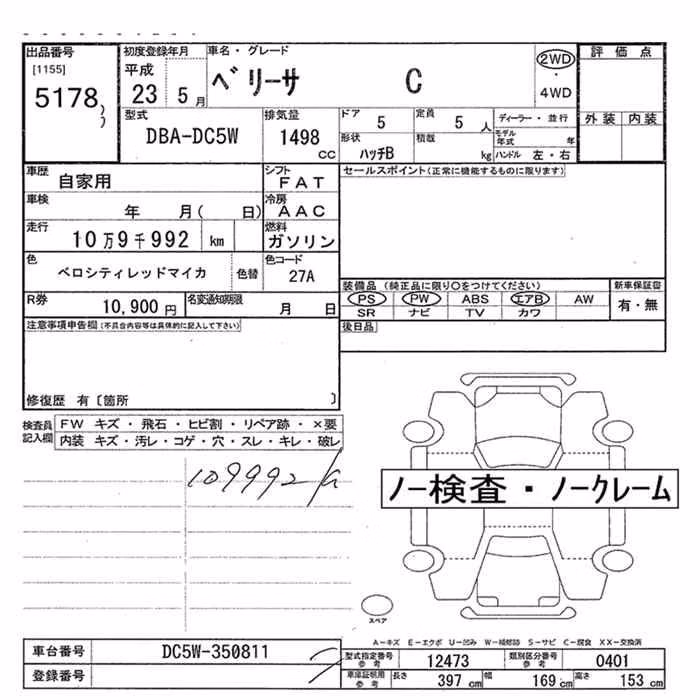 出品番号 初度登録年月 車名・グレード 評価点
[1155] 平成 ベリーサ C 2WD
5178 23 5月 ・
4WD
型式 排気量 ドア 5 定員 5人 ディーラー・並行 外装 内装
DBA-DC5W 1498 cc 形状 ハッチB 積載 kg モデル年式 年
ハンドル 左・右
車歴 自家用 シフト FAT セールスポイント(正常に機能するものに限ります)
車検 年 月( 日) 冷房 AAC
走行 10万9千992 km 燃料 ガソリン
色 ベロシティレッドマイカ 色替 色コード 27A
装備品(純正品に限り〇をつけてください) 新車保証書
R券 10,900円 名変通知期限 月 日 PS PW ABS エアB AW 有・無
SR ナビ TV カワ
注意事項申告欄(不具合内容等は具体的に記入して下さい) 後日品
修復歴 有〔箇所 〕
検査員記入欄 FW キズ・飛石・ヒビ割・リペア跡・×要
内装 キズ・汚レ・コゲ・穴・スレ・キレ・破レ
109992
ノー検査・ノークレーム
スペア
A-キズ E-エクボ U-凹み W-補修跡 S-サビ C-腐食 XX-交換済
車台番号 DC5W-350811 型式指定番号参考 12473 類別区分番号参考 0401
登録番号 車庫証明用参考 長さ 397cm 幅 169cm 高さ 153cm